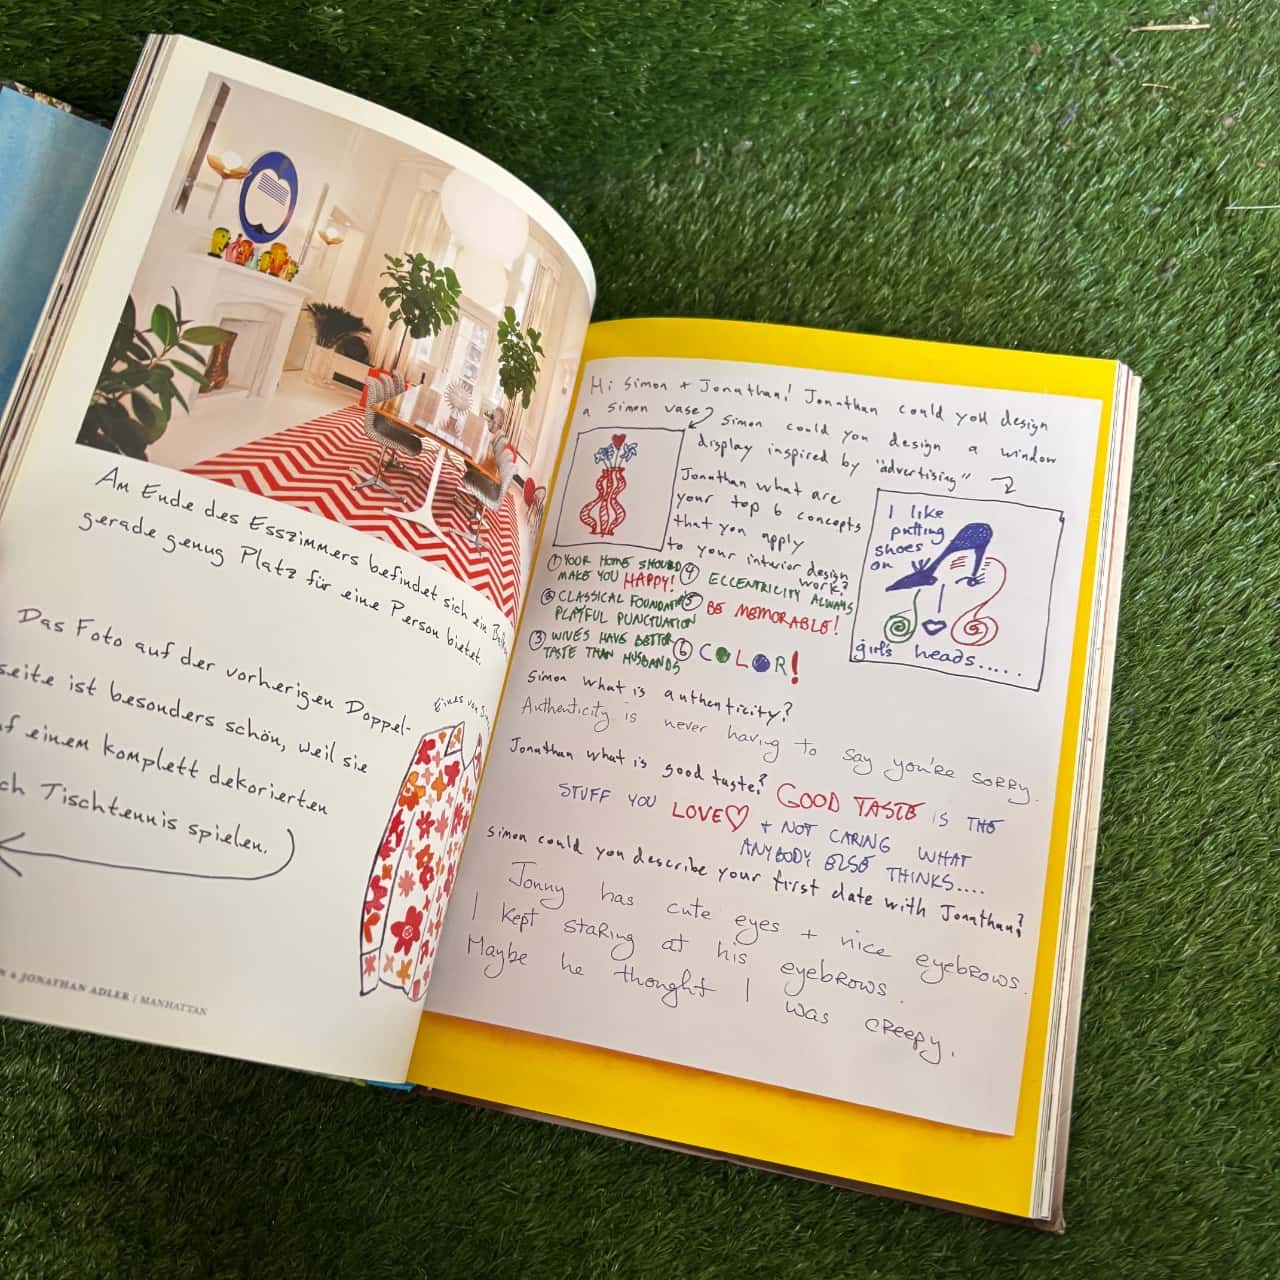 Am Ende des Esszimmers befindet sich ein
gerade genug Platz für eine Person bietet.
Das Foto auf der vorherigen Doppel-
seite ist besonders schön, weil sie
einem komplett dekorierten
Tischtennis spielen.
Eines von
& JONATHAN ADLER | MANHATTAN
Hi Simon + Jonathan! Jonathan could you design
a Simon vase? Simon could you design a window
display inspired by "advertising"
Jonathan what are
your top 6 concepts
that you apply
to your interior design
work?
I like
putting
shoes
on
girl's heads....
① YOUR HOME SHOULD
MAKE YOU HAPPY!
② CLASSICAL
PLAYFUL PUNCTUATION
③ WIVES HAVE BETTER
TASTE THAN HUSBANDS
④ ECCENTRICITY ALWAYS
⑤ BE MEMORABLE!
⑥ COLOR!
Simon what is authenticity?
Authenticity is never having to say you're sorry.
Jonathan what is good taste? GOOD TASTE IS THE
STUFF YOU LOVE♡ + NOT CARING WHAT
ANYBODY ELSE THINKS....
Simon could you describe your first date with Jonathan?
Jonny has cute eyes + nice eyebrows.
I kept staring at his eyebrows.
Maybe he thought I was creepy.